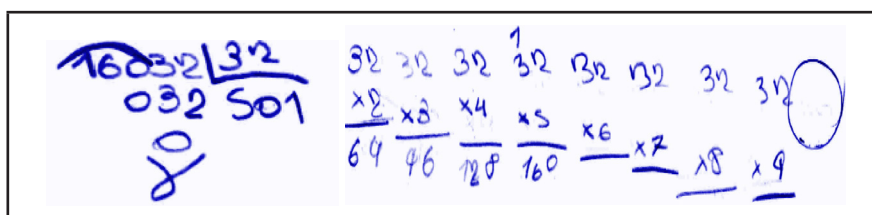 16032 32
032 501
0
32 32 32 32 32 32 32 32
×2 ×3 ×4 ×5 ×6 ×7 ×8 ×9
64 96 128 160
1